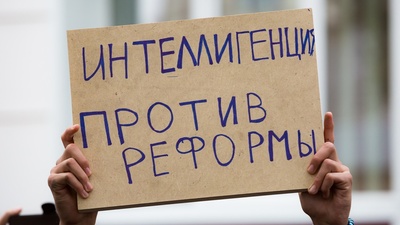 ИНТЕЛЛИГЕНЦИЯ
ПРОТИВ
РЕФОРМЫ